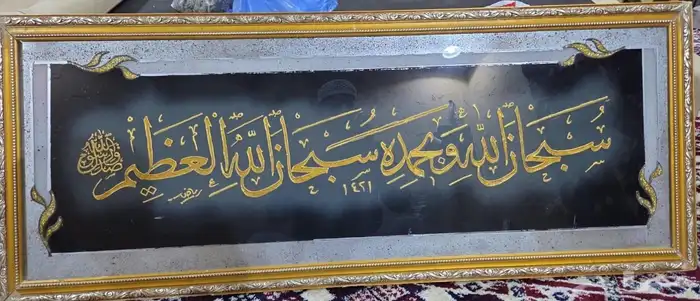 سُبْحَانَ اللّٰهِ وَبِحَمْدِهِ سُبْحَانَ اللّٰهِ الْعَظِيْمِ
١٤٢١